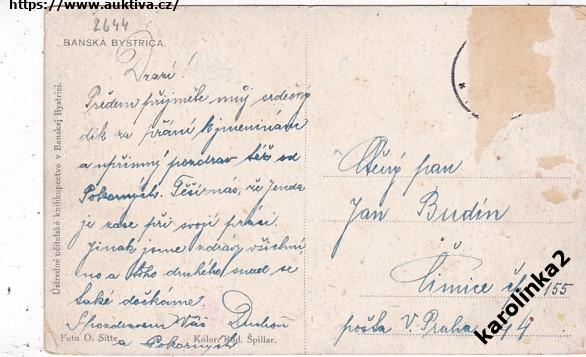 https://www.auktiva.cz/
2644
BANSKÁ BYSTRICA.
Drazí!
Předem přijměte můj srdečný
dík za přání k jmeninám
a upřimný pozdrav též od
Pokorných. Těší nás, že Jenda
je zase při svojí práci.
Jinak jsme zdrávy všichni,
no a toho druhého snad se
také dočkáme.
S pozdravem Váš Duchoň
a Pokorných
Foto O. Sitte Kolor. Rud. Špillar.
Ústredné učitelské knihkupectvo v Banskej Bystrici.
Ctěný pan
Jan Budín
Čimice č. 155
pošta V. Praha 44
karolinka2